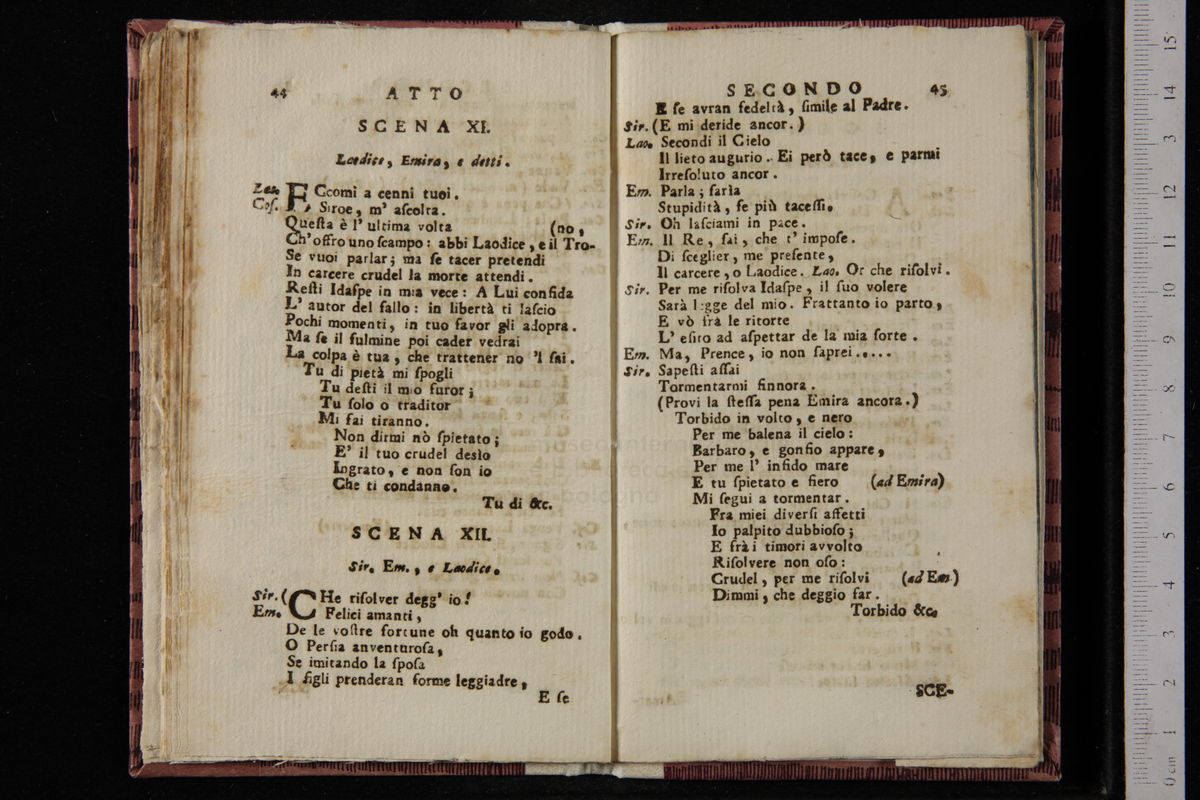 44 ATTO
SCENA XI.
Laodice, Emira, e detti.
Lao. ECcomi a cenni tuoi.
Cos. Siroe, m' aſcolta.
Queſta è l' ultima volta (no,
Ch' offro uno ſcampo: abbi Laodice, e il Tro-
Se vuoi parlar; ma ſe tacer pretendi
In carcere crudel la morte attendi.
Reſti Idaſpe in mia vece: A Lui confida
L' autor del fallo: in libertà ti laſcio
Pochi momenti, in tuo favor gli adopra.
Ma ſe il fulmine poi cader vedrai
La colpa è tua, che trattener no 'l ſai.
Tu di pietà mi ſpogli
Tu deſti il mio furor;
Tu ſolo o traditor
Mi fai tiranno.
Non dirmi nò ſpietato;
E' il tuo crudel desìo
Ingrato, e non ſon io
Che ti condanno.
Tu di &c.
SCENA XII.
Sir. Em., e Laodice.
Sir. (CHe riſolver degg' io!
Em. Felici amanti,
De le voſtre fortune oh quanto io godo.
O Perſia anventuroſa,
Se imitando la ſpoſa
I figli prenderan forme leggiadre,
E ſe
SECONDO 45
E ſe avran fedeltà, ſimile al Padre.
Sir. (E mi deride ancor.)
Lao. Secondi il Cielo
Il lieto augurio. Ei però tace, e parmi
Irreſoluto ancor.
Em. Parla; ſarìa
Stupidità, ſe più taceſſi.
Sir. Oh laſciami in pace.
Em. Il Re, ſai, che t' impoſe.
Di ſceglier, me preſente,
Il carcere, o Laodice. Lao. Or che riſolvi.
Sir. Per me riſolva Idaſpe, il ſuo volere
Sarà legge del mio. Frattanto io parto,
E vò frà le ritorte
L' eſito ad aſpettar de la mia ſorte.
Em. Ma, Prence, io non ſaprei.....
Sir. Sapeſti aſſai
Tormentarmi ſinnora.
(Provi la ſteſſa pena Emira ancora.)
Torbido in volto, e nero
Per me balena il cielo:
Barbaro, e gonfio appare,
Per me l' infido mare
E tu ſpietato e fiero (ad Emira)
Mi ſegui a tormentar.
Fra miei diverſi affetti
Io palpito dubbioſo;
E frà i timori avvolto
Riſolvere non oſo:
Crudel, per me riſolvi (ad Em)
Dimmi, che deggio far.
Torbido &c.
SCE-